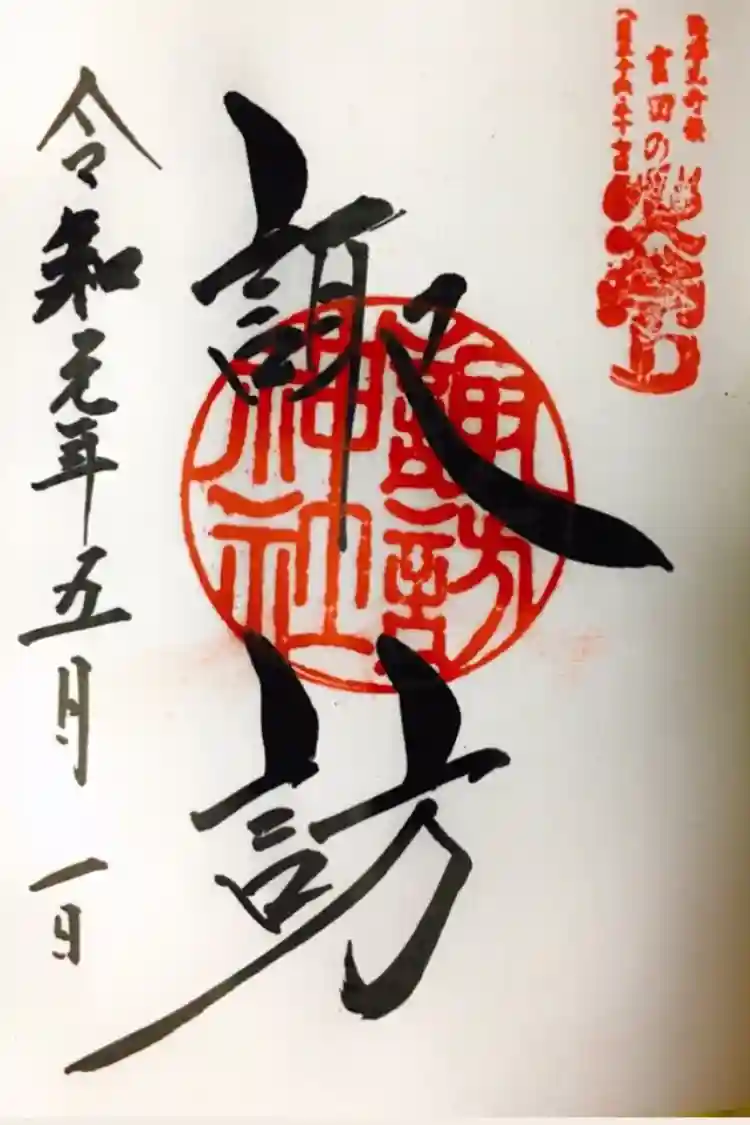 吉田の
諏訪
諏訪
神社
令和元年五月一日